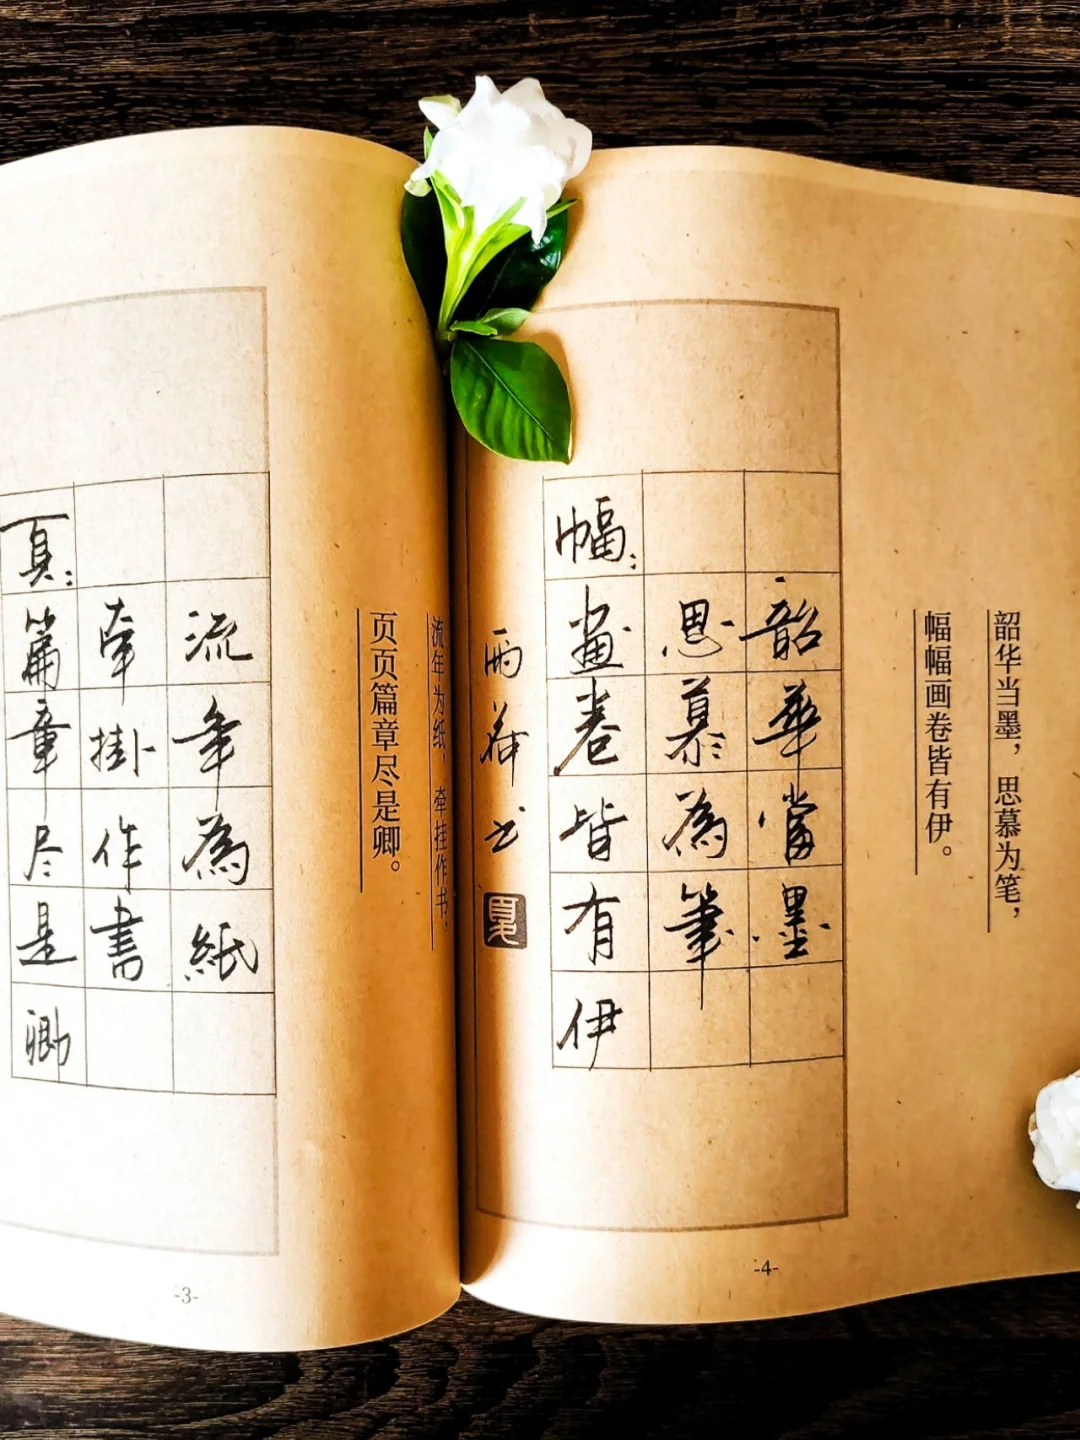 流年为纸，牵挂作书，
页页篇章尽是卿。
流年為紙
牽掛作書
頁〻篇章尽是卿
-3-
韶华当墨，思慕为笔，
幅幅画卷皆有伊。
韶華當墨
思慕為筆
幅〻畫卷皆有伊
雨 书
-4-